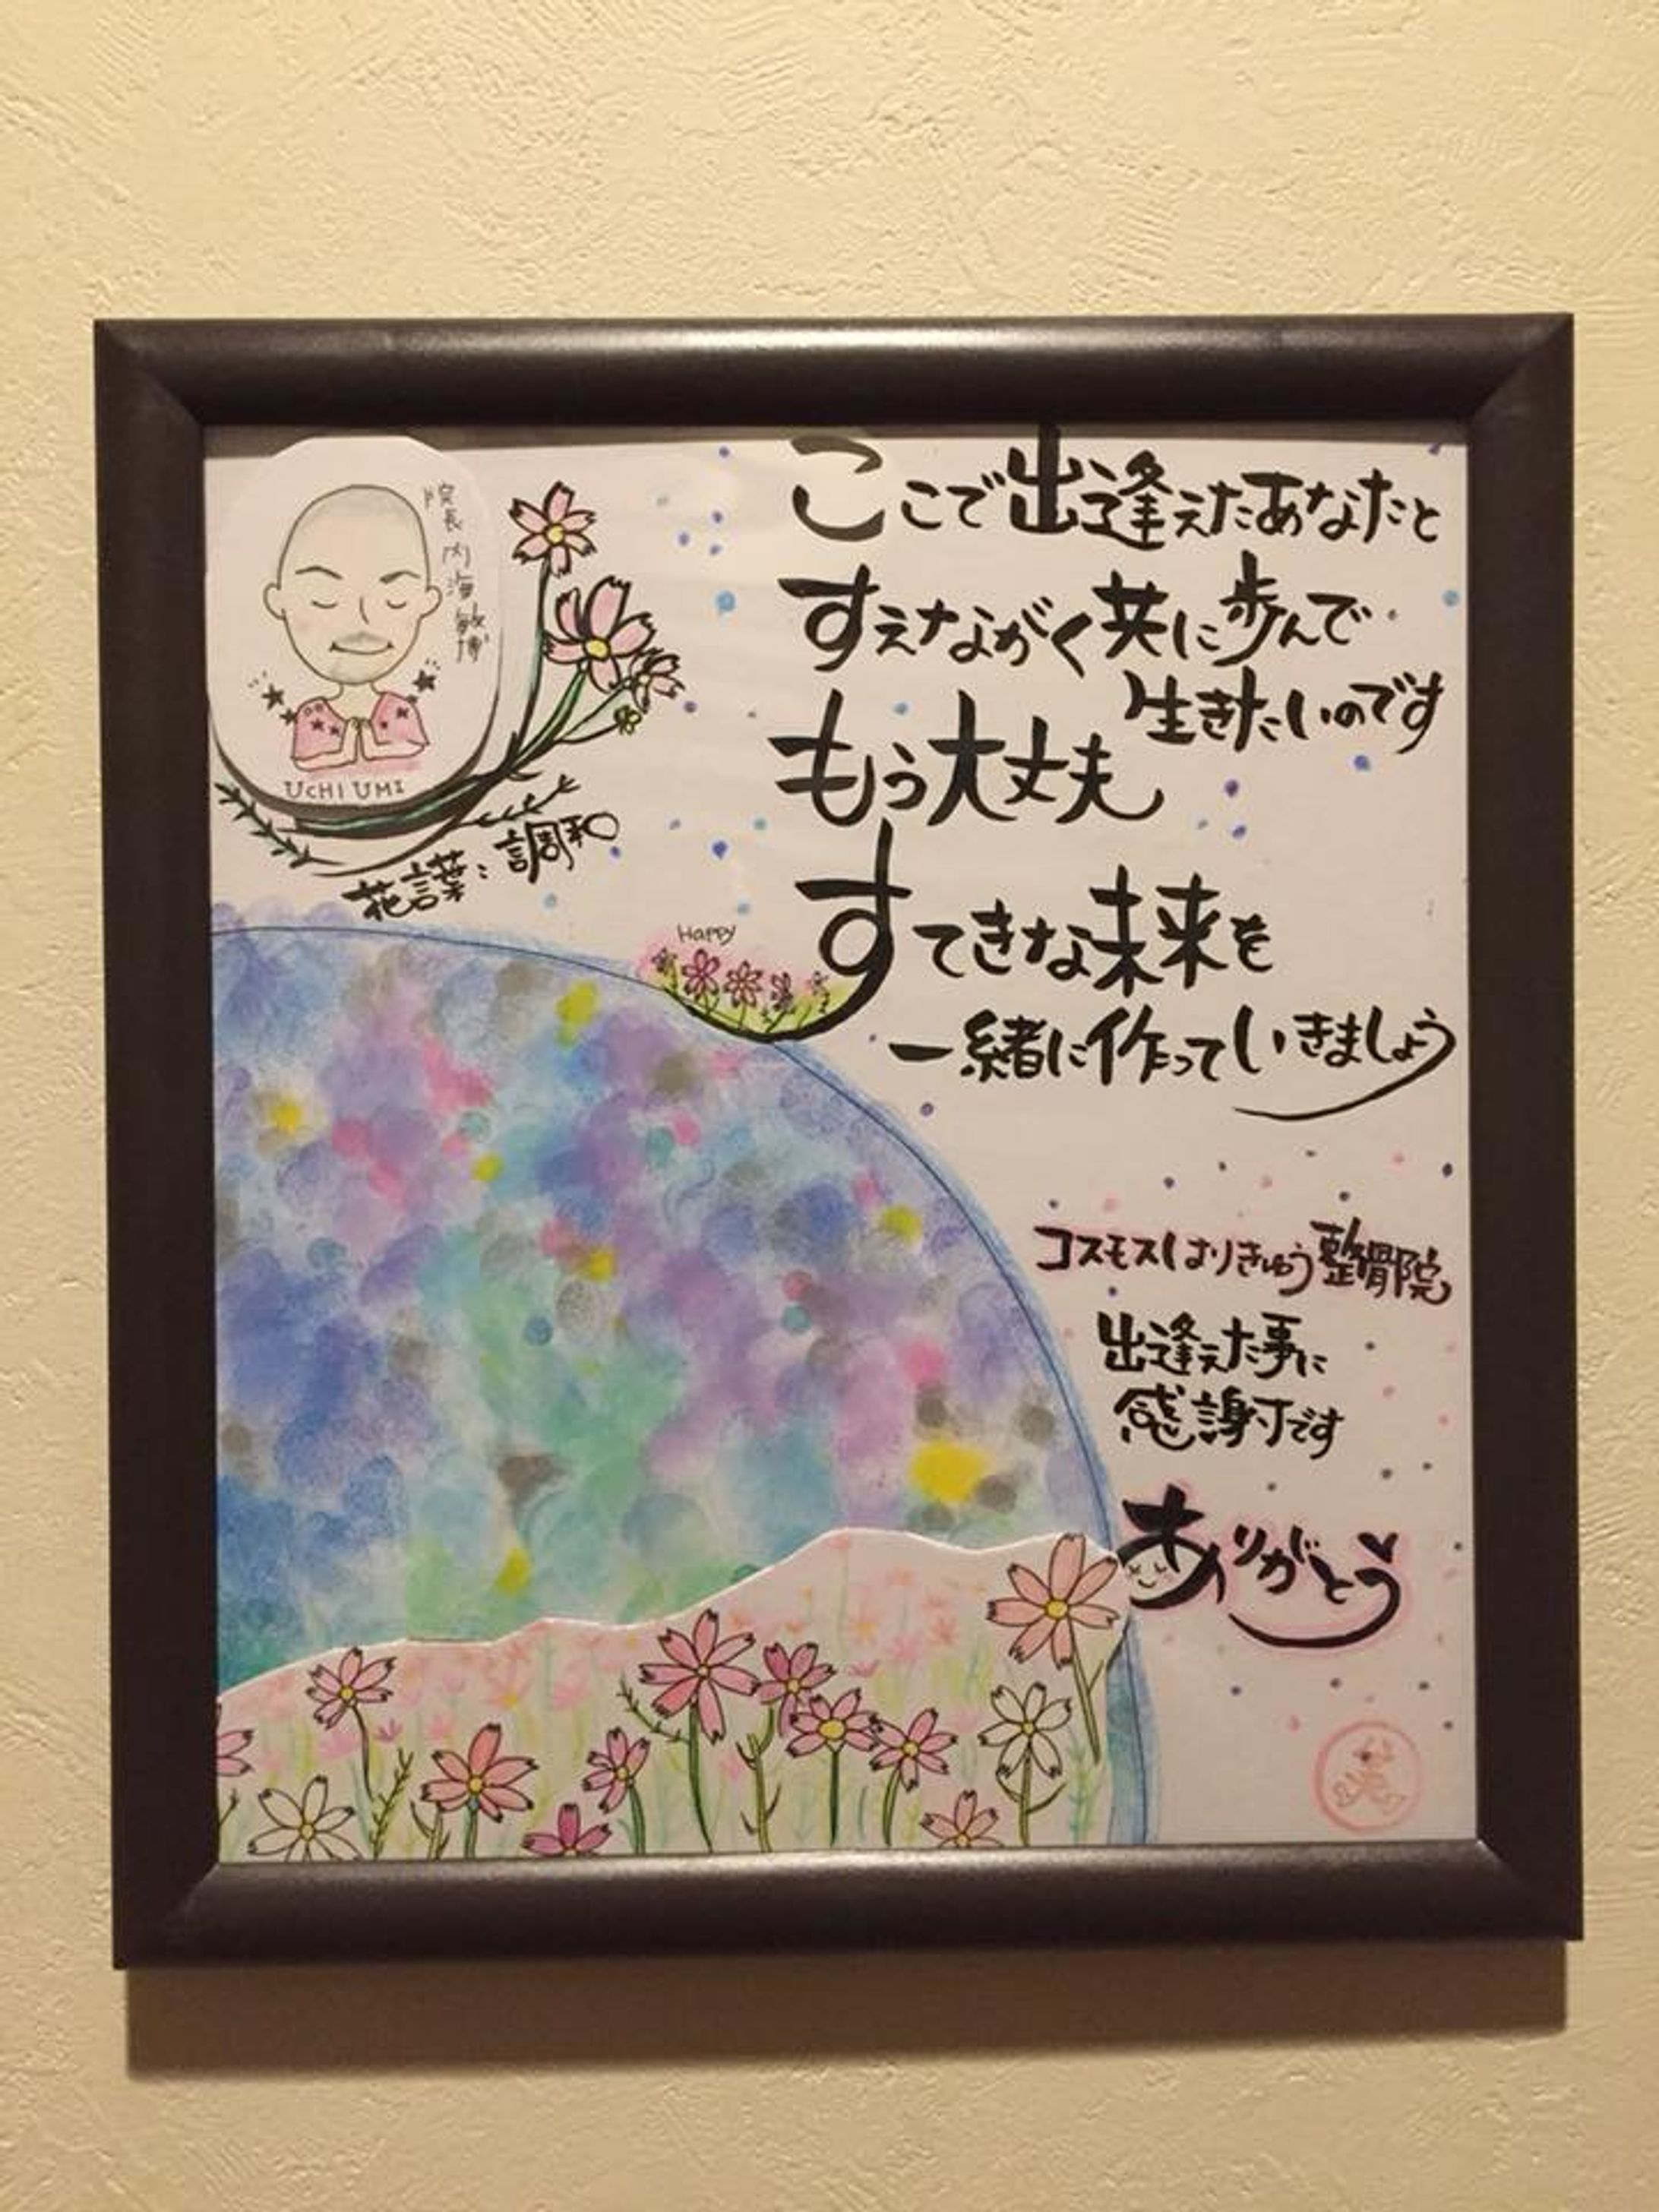 院長 内海敏博
UCHIUMI
花言葉：調和
ここで出逢えたあなたと
すえながく共に歩んで
生きたいのです
もう大丈夫
すてきな未来を
一緒に作っていきましょう
Happy
コスモスはりきゅう整骨院
出逢えた事に
感謝です
ありがとう